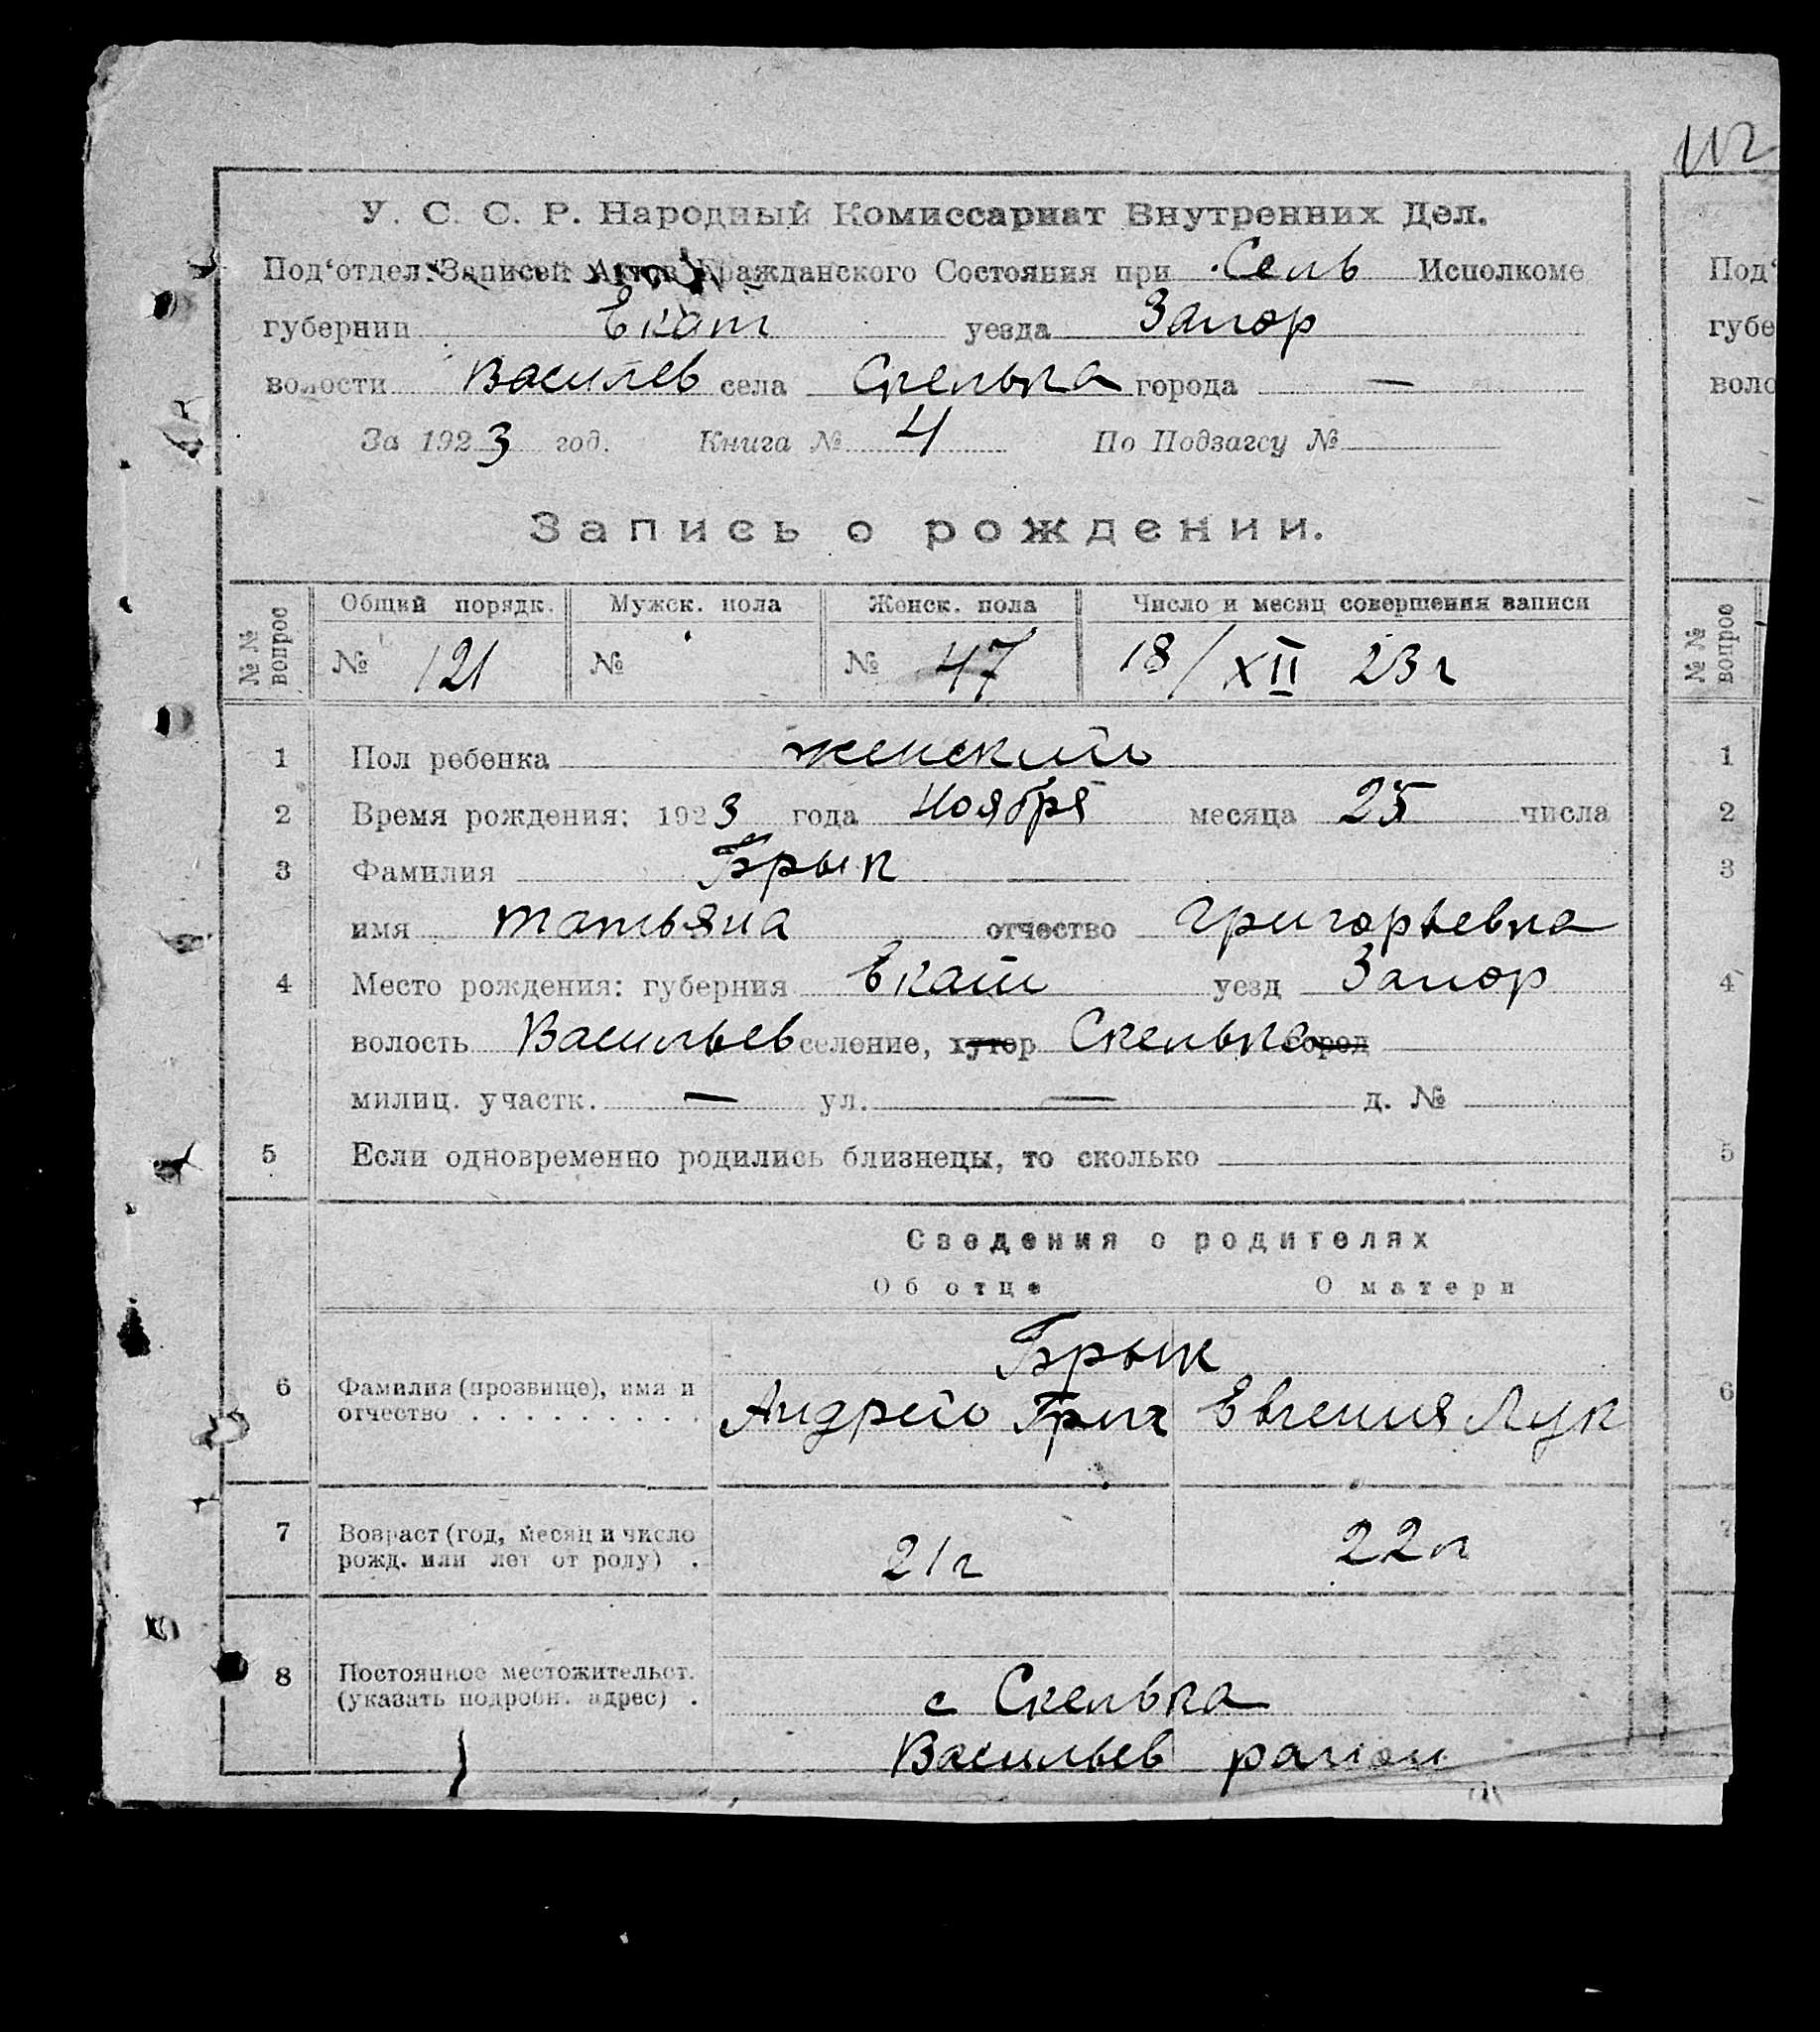 У. С. С. Р. Народный Комиссариат Внутренних Дел.
Под‘отдел Записей Актов Гражданского Состояния при Сель Исполкоме
губернии Екат уезда Запор
волости Василев села Скелька города —
За 1923 год. Книга № 4 По Подзагсу №
Запись о рождении.
№ № вопрос Общий порядк. Мужск. пола Женск. пола Число и месяц совершения записи
№ 121 № № 47 18/XII 23 г
1 Пол ребенка женский
2 Время рождения: 1923 года Ноября месяца 25 числа
3 Фамилия Брык
имя Татьяна отчество Григорьевна
4 Место рождения: губерния Екат уезд Запор
волость Васильев селение, хутор Скелька город
милиц. участк. — ул. — д. №
5 Если одновременно родились близнецы, то сколько
Сведения о родителях
Об отце О матери
Брык
6 Фамилия (прозвище), имя и
отчество . . . . . . . . . . Андрей Григ Евгения Лук
7 Возраст (год, месяц и число
рожд. или лет от роду) . 21 г 22 л
8 Постоянное местожительст.
(указать подробн. адрес) . с Скелька
Васильев район
Под‘
губе
воло
№ № вопрос
1
2
3
4
5
6
7